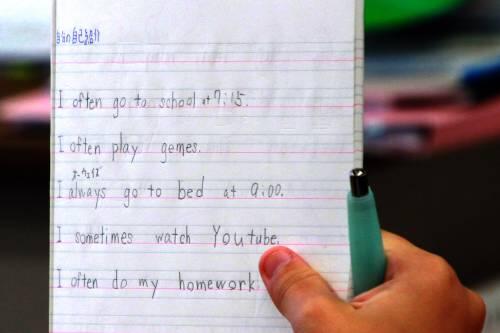 自分の自己紹介
I often go to school at 7:15.
I often play gemes.
I always go to bed at 9:00.
I sometimes watch YouTube.
I often do my homework